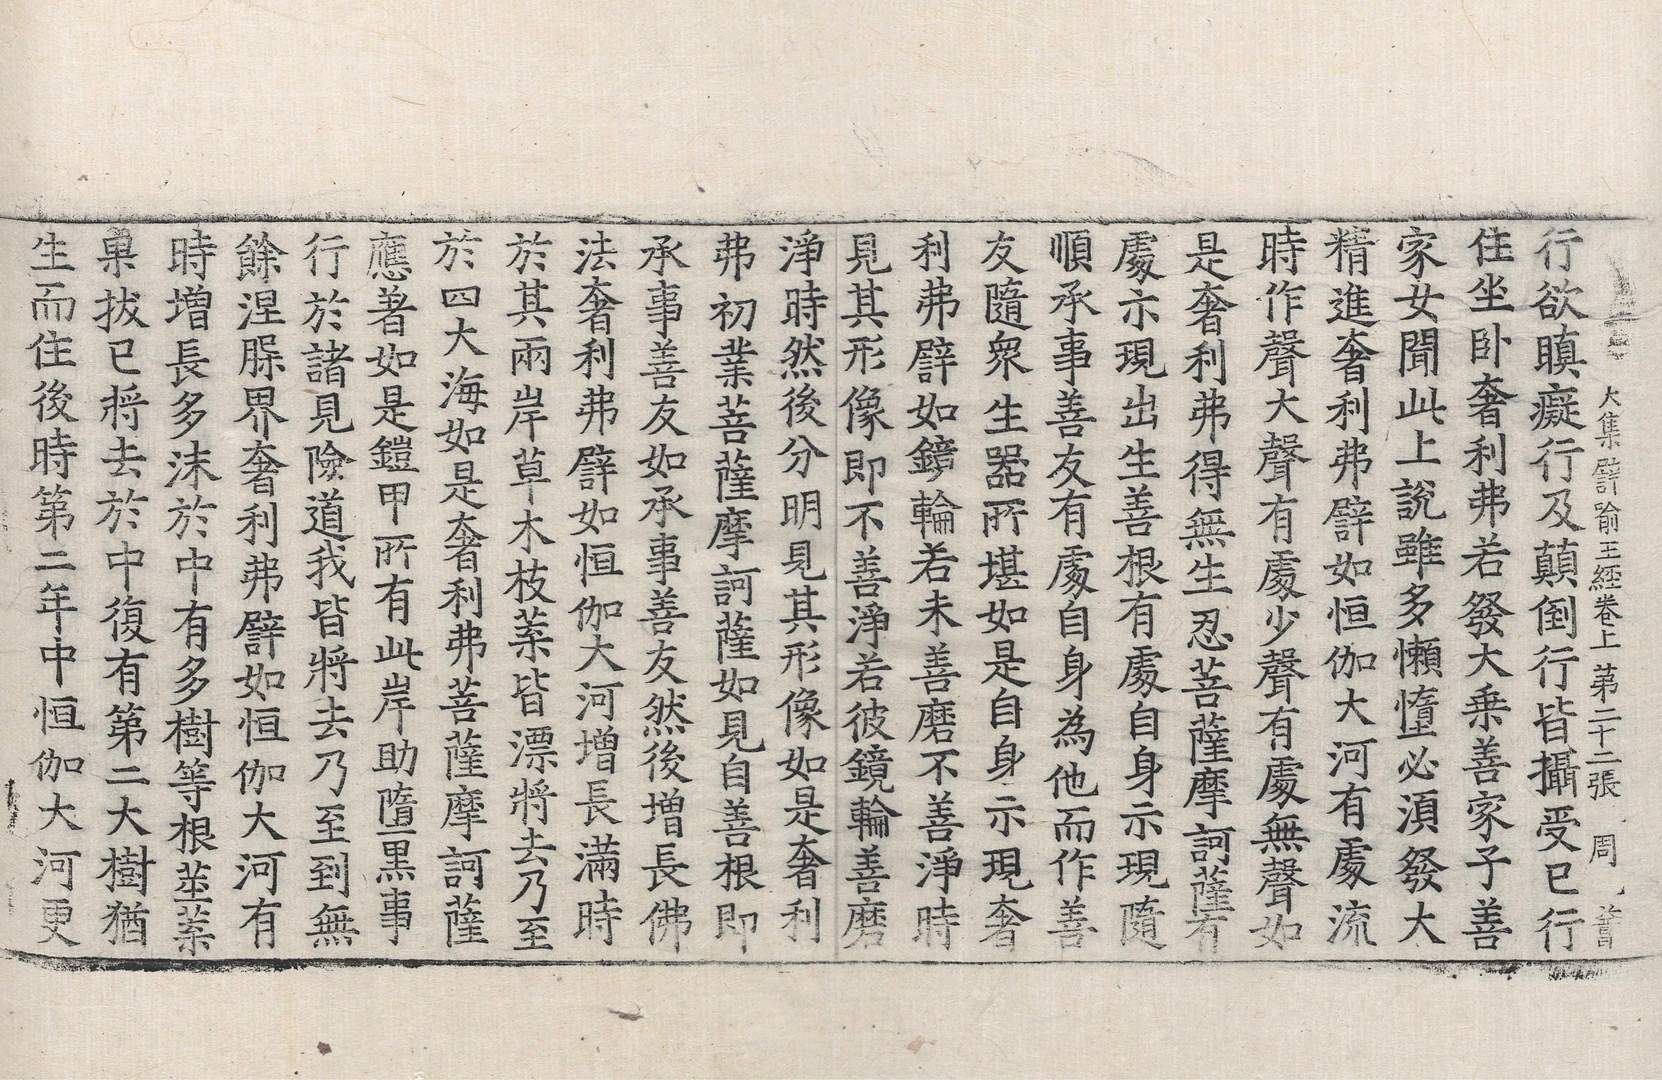 大集譬喻王經卷上 第二十二張 周
行欲瞋癡行及顛倒行皆攝受已行
住坐卧奢利弗若發大乘善家子善
家女聞此上說雖多懶墮必須發大
精進奢利弗譬如恒伽大河有處流
時作聲大聲有處少聲有處無聲如
是奢利弗得無生忍菩薩摩訶薩有
處示現出生善根有處自身示現隨
順承事善友有處自身為他而作善
友隨衆生器所堪如是自身示現奢
利弗譬如鏡輪若未善磨不善淨時
見其形像即不善淨若彼鏡輪善磨
淨時然後分明見其形像如是奢利
弗初業菩薩摩訶薩如見自善根即
承事善友如承事善友然後增長佛
法奢利弗譬如恒伽大河增長滿時
於其兩岸草木枝葉皆漂將去乃至
於四大海如是奢利弗菩薩摩訶薩
應著如是鎧甲所有此岸助墮黑事
行於諸見險道我皆將去乃至到無
餘涅槃界奢利弗譬如恒伽大河有
時增長多沫於中有多樹等根莖葉
果拔已將去於中復有第二大樹猶
生而住後時第二年中恒伽大河更